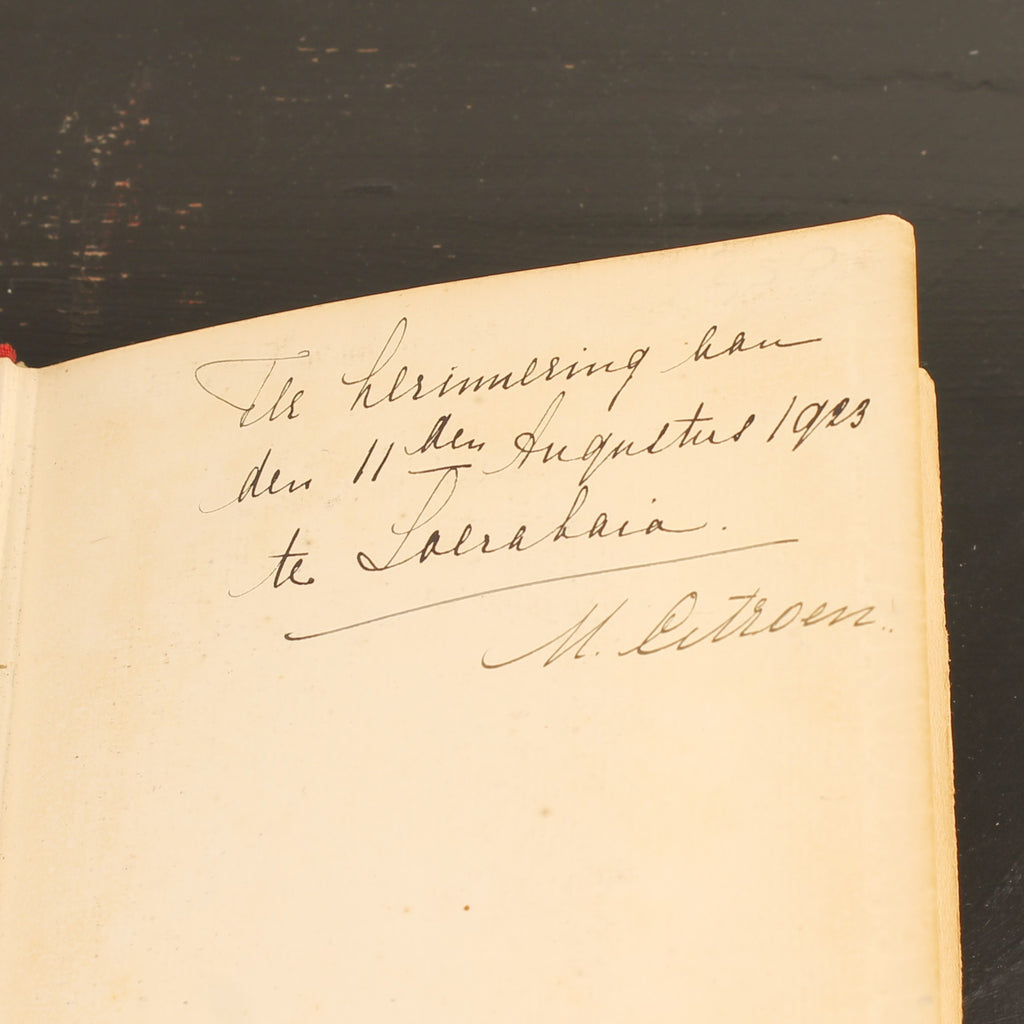 Ter herinnering aan
den 11den Augustus 1923
te Soerabaia.
M. Citroen.